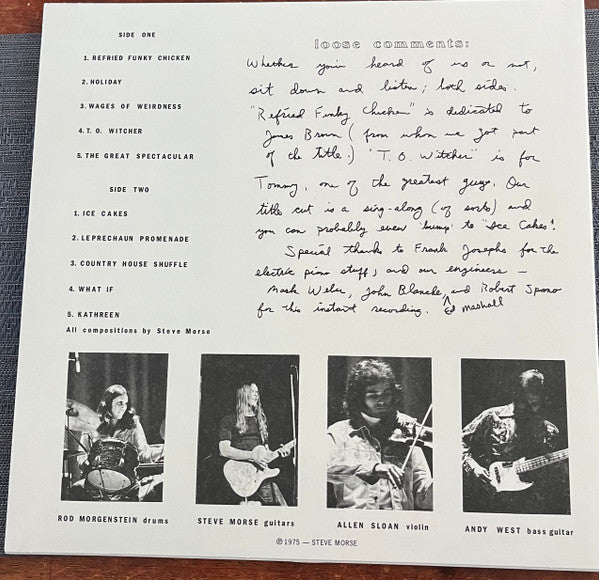 SIDE ONE
1. REFRIED FUNKY CHICKEN
2. HOLIDAY
3. WAGES OF WEIRDNESS
4. T. O. WITCHER
5. THE GREAT SPECTACULAR
SIDE TWO
1. ICE CAKES
2. LEPRECHAUN PROMENADE
3. COUNTRY HOUSE SHUFFLE
4. WHAT IF
5. KATHREEN
All compositions by Steve Morse
loose comments:
Whether you've heard of us or not,
sit down and listen; both sides.
"Refried Funky Chicken" is dedicated to
James Brown (from whom we got part
of the title.) "T.O. Witcher" is for
Tommy, one of the greatest guys. Our
title cut is a sing-along (of sorts) and
you can probably even 'bump' to "Ice Cakes".
Special thanks to Frank Josephs for the
electric piano stuff; and our engineers —
Mark Weber, John Blanche, and Robert Spano
for this instant recording. Ed Mashall
ROD MORGENSTEIN drums
STEVE MORSE guitars
ALLEN SLOAN violin
ANDY WEST bass guitar
℗ 1975 — STEVE MORSE